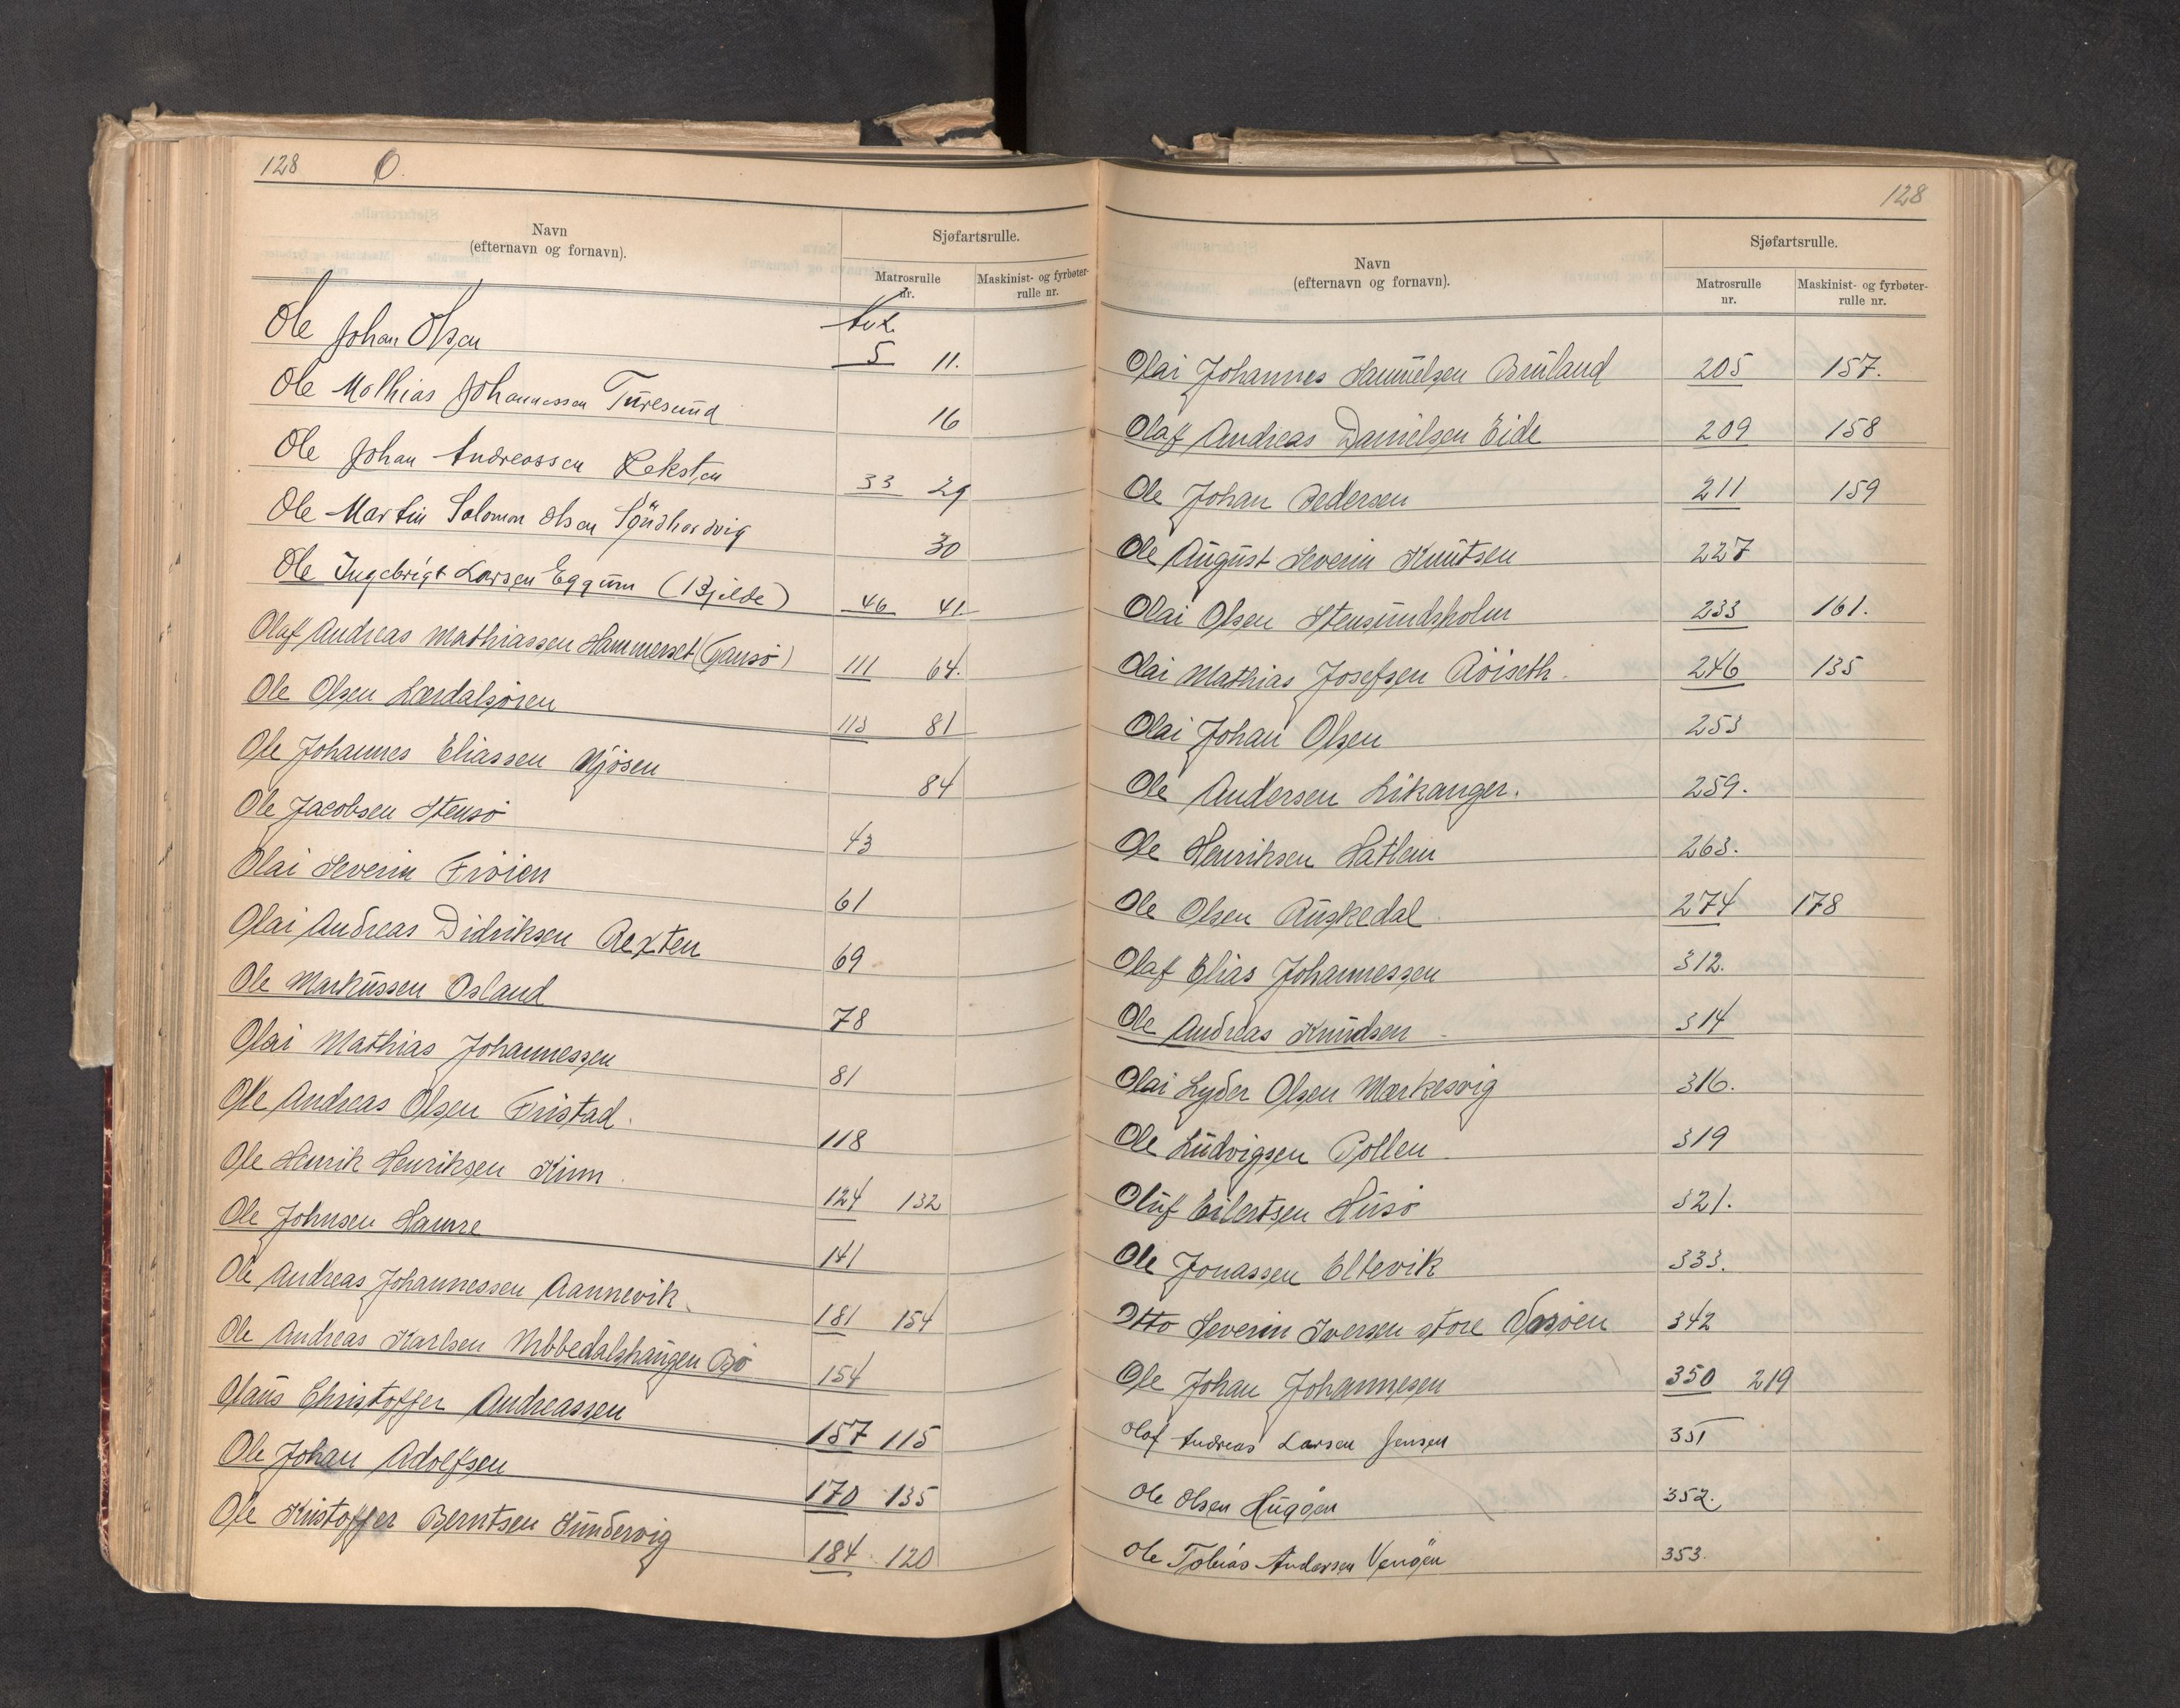 128 O.
Navn
(efternavn og fornavn).
Sjøfartsrulle.
Matrosrulle
nr.
Maskinist- og fyrbøter-
rulle nr.
Ole Johan Olsen 5 11.
Ole Mathias Johannessen Türesund 16
Ole Johan Andreassen Reksten 33 29
Ole Martin Salomon Olsen 30
Ole Ingebrigt Larsen Eggum (Bjelde) 46 41
Olaf Andreas Mathiassen Hammerset (Gansö) 111 64.
Ole Olsen Lærdalsören 113 81
Ole Johannes Eliassen Njösen 84
Ole Jacobsen Stensö 43
Olai Severin Fröien 61
Olai Andreas Didriksen Rexten 69
Ole Markussen Osland 78
Olai Mathias Johannessen 81
Ole Andreas Olsen Fristad. 118
Ole Henrik Henriksen Kinn. 124 132
Ole Johnsen Hamre 141
Ole Andreas Johannessen Aannevik. 181 154
Ole Andreas Karlsen Nibbedalshaugen Bö 154
Olaus Christoffer Andreassen 157 115
Ole Johan Adolfsen 170 135
Ole Kristoffer Berntsen Sundervig 184 120
128
Navn
(efternavn og fornavn).
Sjøfartsrulle.
Matrosrulle
nr.
Maskinist- og fyrbøter-
rulle nr.
Olai Johannes Samuelsen Bruland 205 157.
Olaf Andreas Danielsen Eide 209 158
Ole Johan Pedersen 211 159
Ole August Severin Knutsen 227
Olai Olsen Stensundsholm 233 161.
Olai Mathias Josefsen Röiseth. 246 135
Olai Johan Olsen 253
Ole Andersen Likanger. 259.
Ole Henriksen Hatlem 263.
Ole Olsen Ruskedal 274 178
Olaf Elias Johannessen 312.
Ole Andreas Knudsen 314
Olai Lyder Olsen Markesvig 316.
Ole Ludvigsen Pollen 319
Oluf Eilertsen Husö 321.
Ole Jonassen Eltevik 333.
Otto Severin Iversen store Vasöen 342
Ole Johan Johannesen 350 219
Olaf Andreas Larsen Jensen 351
Ole Olsen Hugöen 352.
Ole Tobias Andersen Vengöen 353.